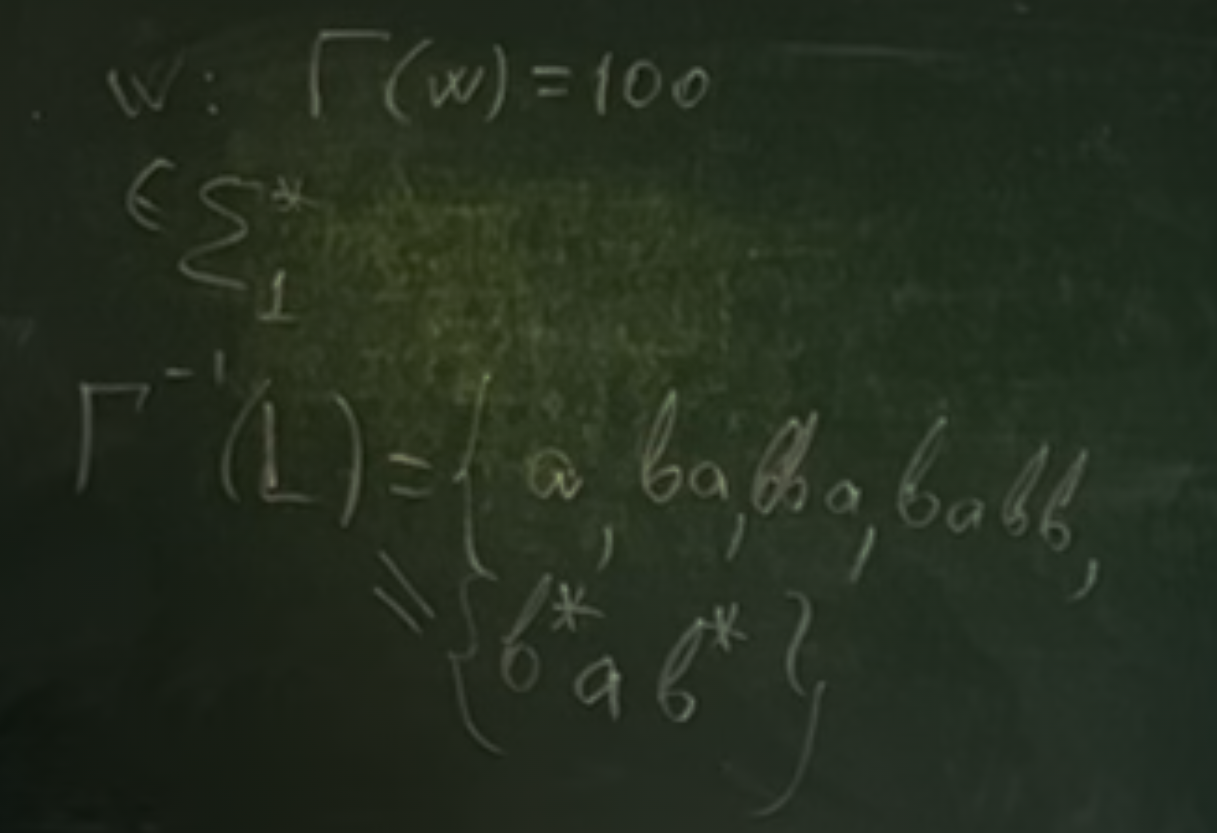 w: Γ(w) = 100
∈ Σ*₁
Γ⁻¹(L) = { a, ba, bba, babb,
= { b* a b* }